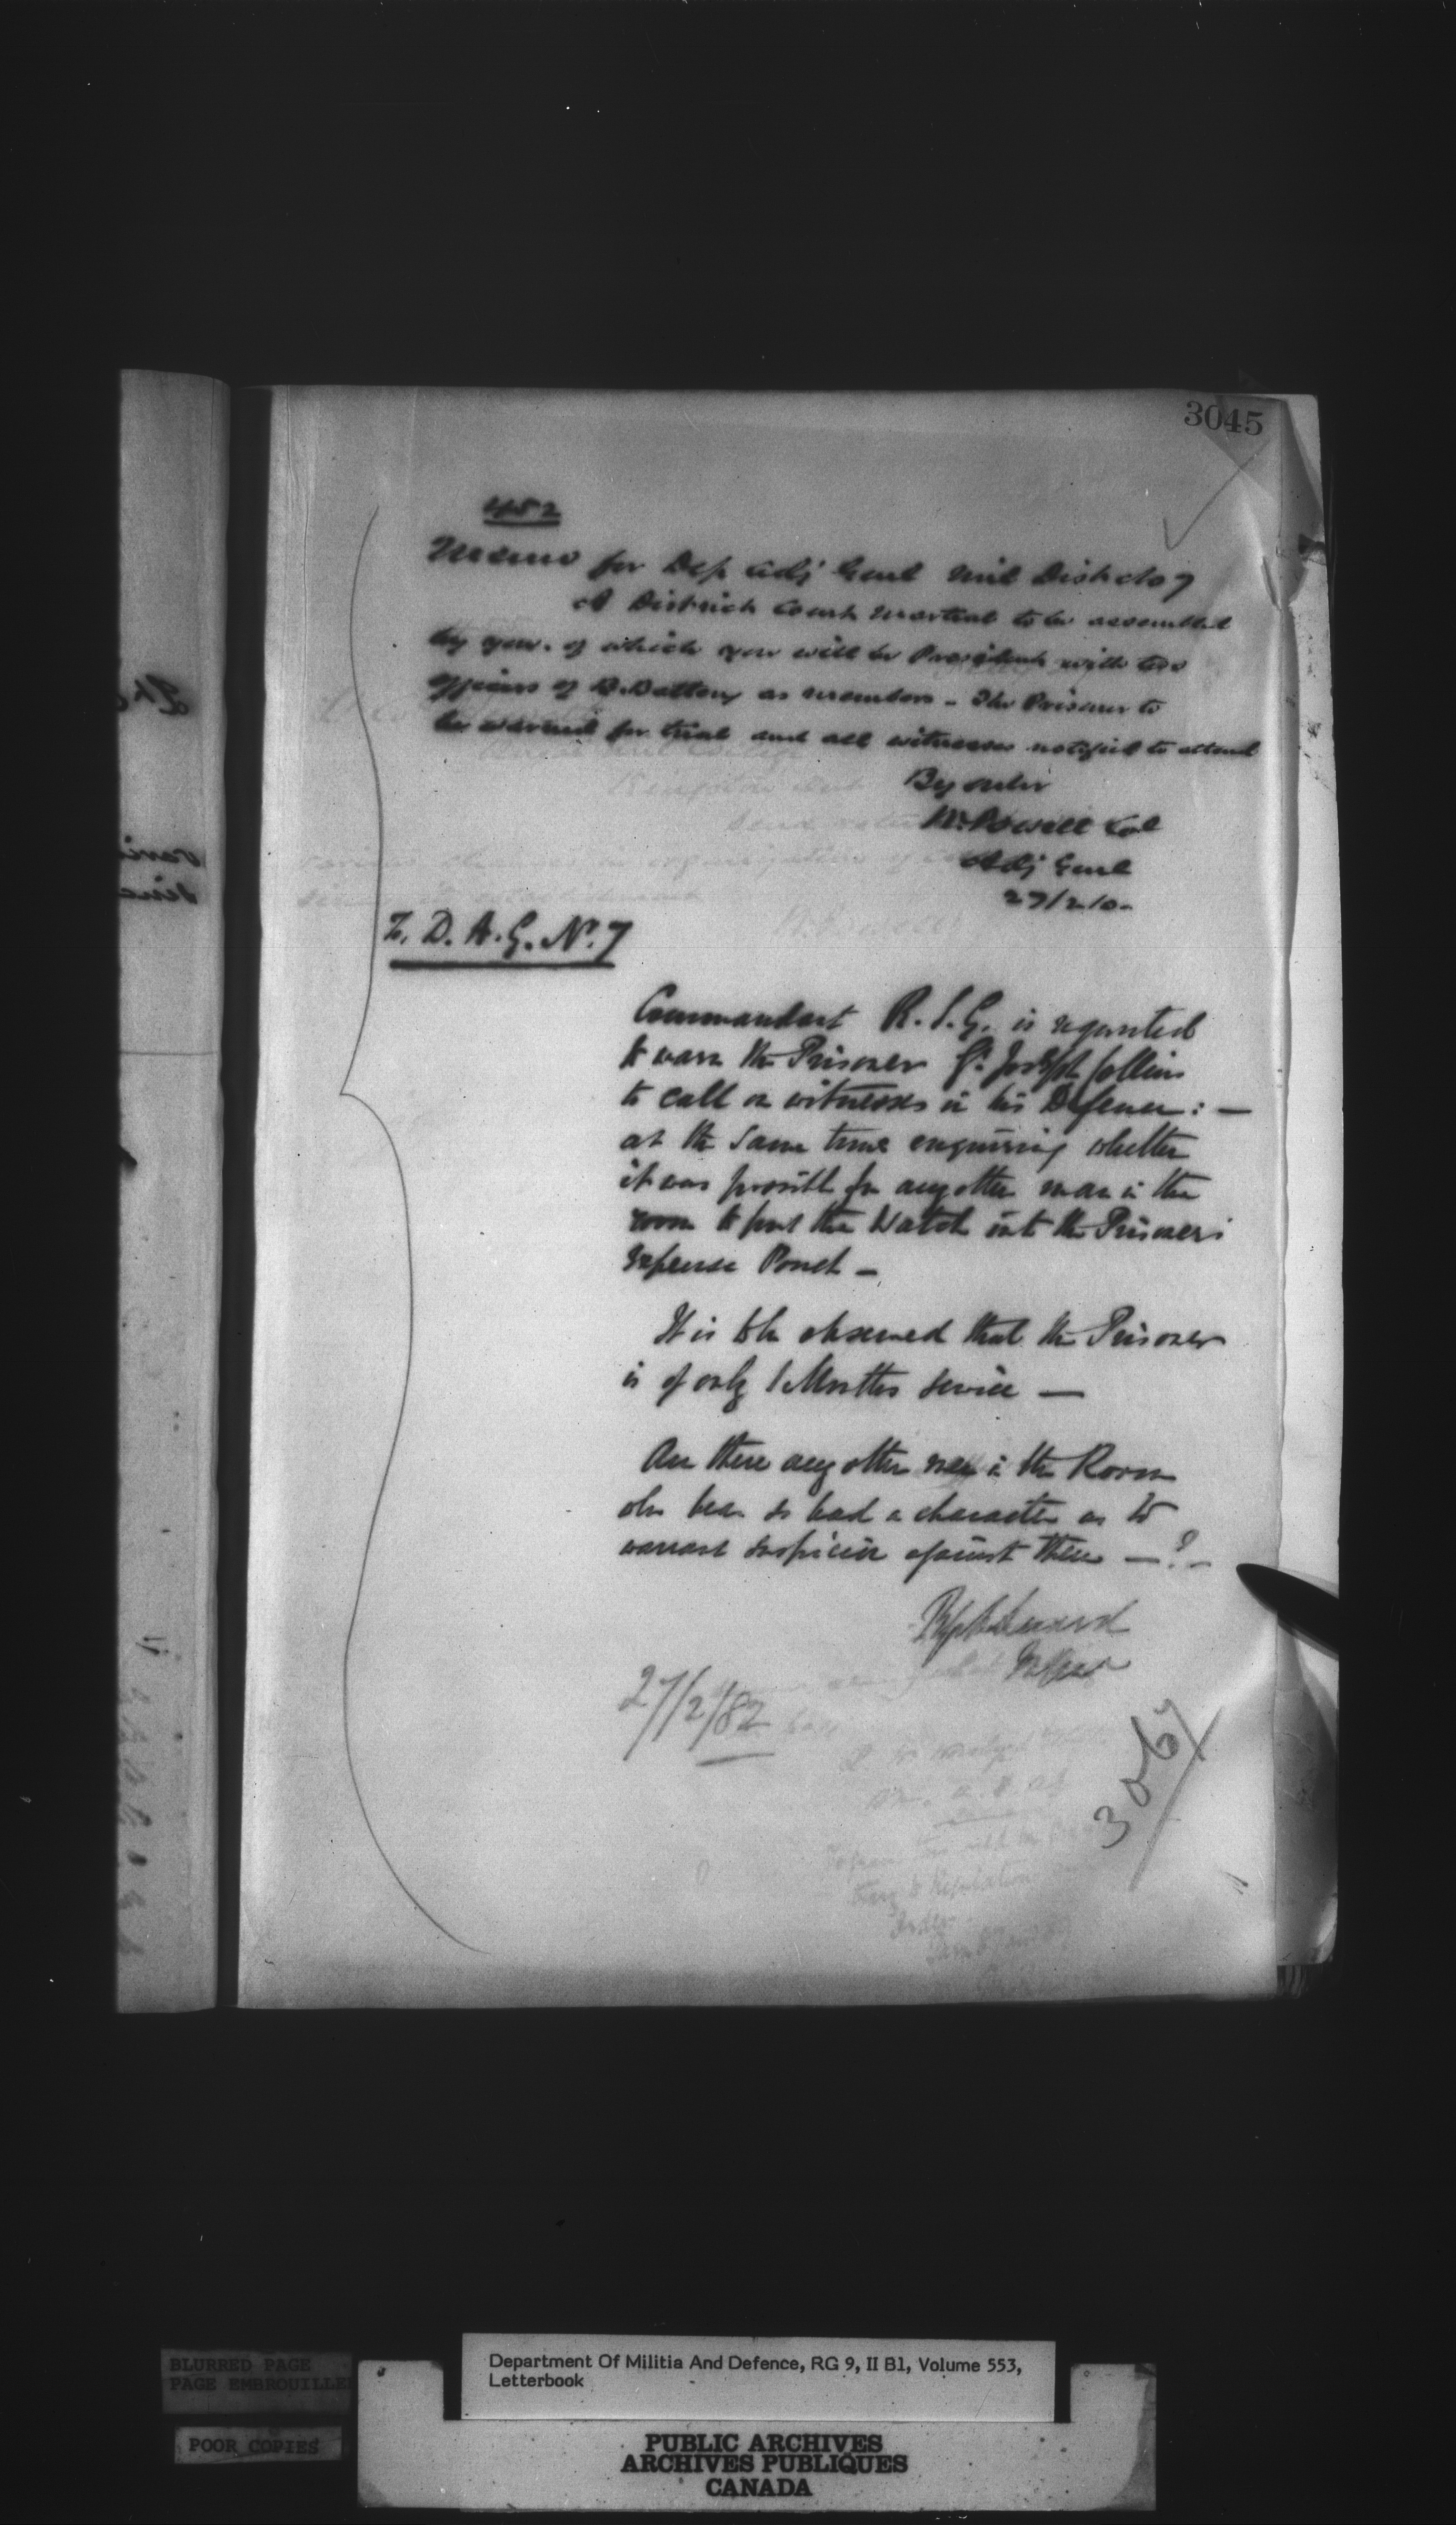 3045
452
Memo for Dep Adj Genl Mil Dist No 7
A District Court Martial to be assembled
by you. of which you will be President with two
officers of B. Battery as members - The Prisoner to
be warned for trial and all witnesses notified to attend
By order
W. Powell Col
Adj Genl
27/2/0-
D. A. G. No. 7
Commandant R. S. G. is requested
to warn the Prisoner Gr Joseph Collins
to call on witnesses in his Defence : —
at the same time enquiring whether
it was possible for any other man in the
room to put the Watch into the Prisoner's
Expense Pouch —
It is to be observed that the Prisoner
is of only 1 Months service —
Are there any other men in the Room
who bear so bad a character as to
warrant suspicion against them — ? —
27/2/82
3067
BLURRED PAGE
PAGE EMBROUILLEE
POOR COPIES
Department Of Militia And Defence, RG 9, II B1, Volume 553,
Letterbook
PUBLIC ARCHIVES
ARCHIVES PUBLIQUES
CANADA